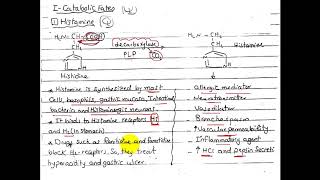 I- Catabolic Fates
① Histamine
H₂N COOH
decarboxylase
PLP
CO₂
H₂N
Histamine
Histidine
* Histamine is synthesized by mast
Cells, basophils, gastric mucosa, Intestinal
bacteria and Histaminergic neurons.
* It binds to Histamine receptors H₁
and H₂ (in Stomach)
* Drugs such as Ranitidine and famotidine
block H₂-receptors, So, they treat
hyperacidity and gastric ulcer.
- Allergic mediator
- Neurotransmitter
- Vasodilator
- Bronchospasm
- ↑ Vascular permeability
- Inflammatory agent
- ↑ HCl and Pepsin Secretion